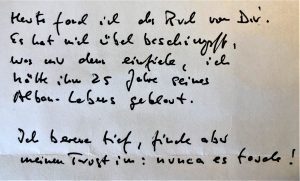 Heute fand ich das Buch von Dir.
Es hat mich übel beschimpft,
was mir denn einfiele, ich
hätte ihm 25 Jahre seines
Leben geklaut.
Ich bereue tief, finde aber
meinen Trost in: nunca es tarde!